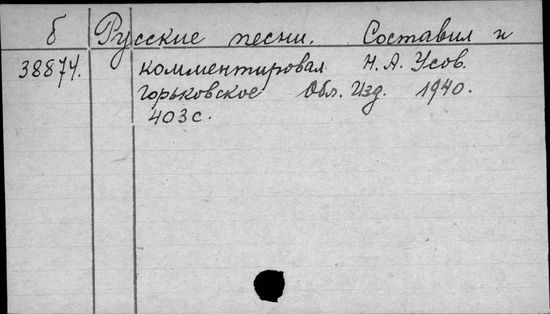 б Русские песни. Составил и
38874. комментировал Н. А. Усов.
горьковское Обл. Изд. 1940.
403 с.